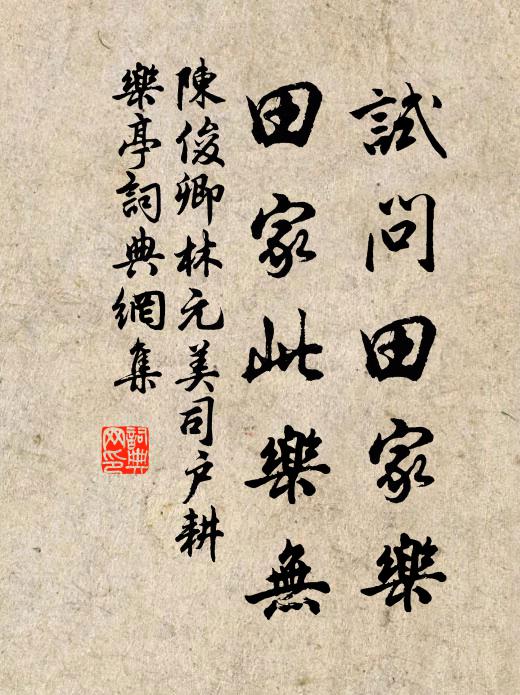 試問田家樂
田家此樂無
陳俊卿林元美司户耕
樂亭詞典網集
詞典
网印